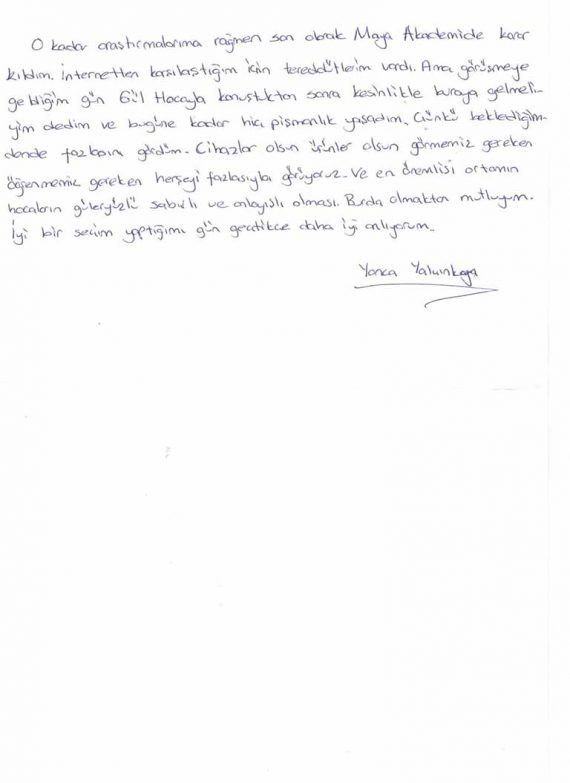 O kadar araştırmalarıma rağmen son olarak Maya Akademide karar
kıldım. İnternetten karşılaştığım için tereddütlerim vardı. Ama görüşmeye
geldiğim gün Gül Hocayla konuştuktan sonra kesinlikle buraya gelmeli-
yim dedim ve bugüne kadar hiç pişmanlık yaşadım. Çünkü beklediğim-
denđe fazlasını gördüm. Cihazlar olsun ürünler olsun görmemiz gereken
öğenmemiz gereken herşeyi fazlasıyla görüyoruz. Ve en önemlisi ortamın
hocaların güleryüzlü sabırlı ve anlayışlı olması. Burda olmaktan mutluyum.
İyi bir seçim yaptığımı gün geçtikçe daha iyi anlıyorum..
Yonca Yalçınkaya